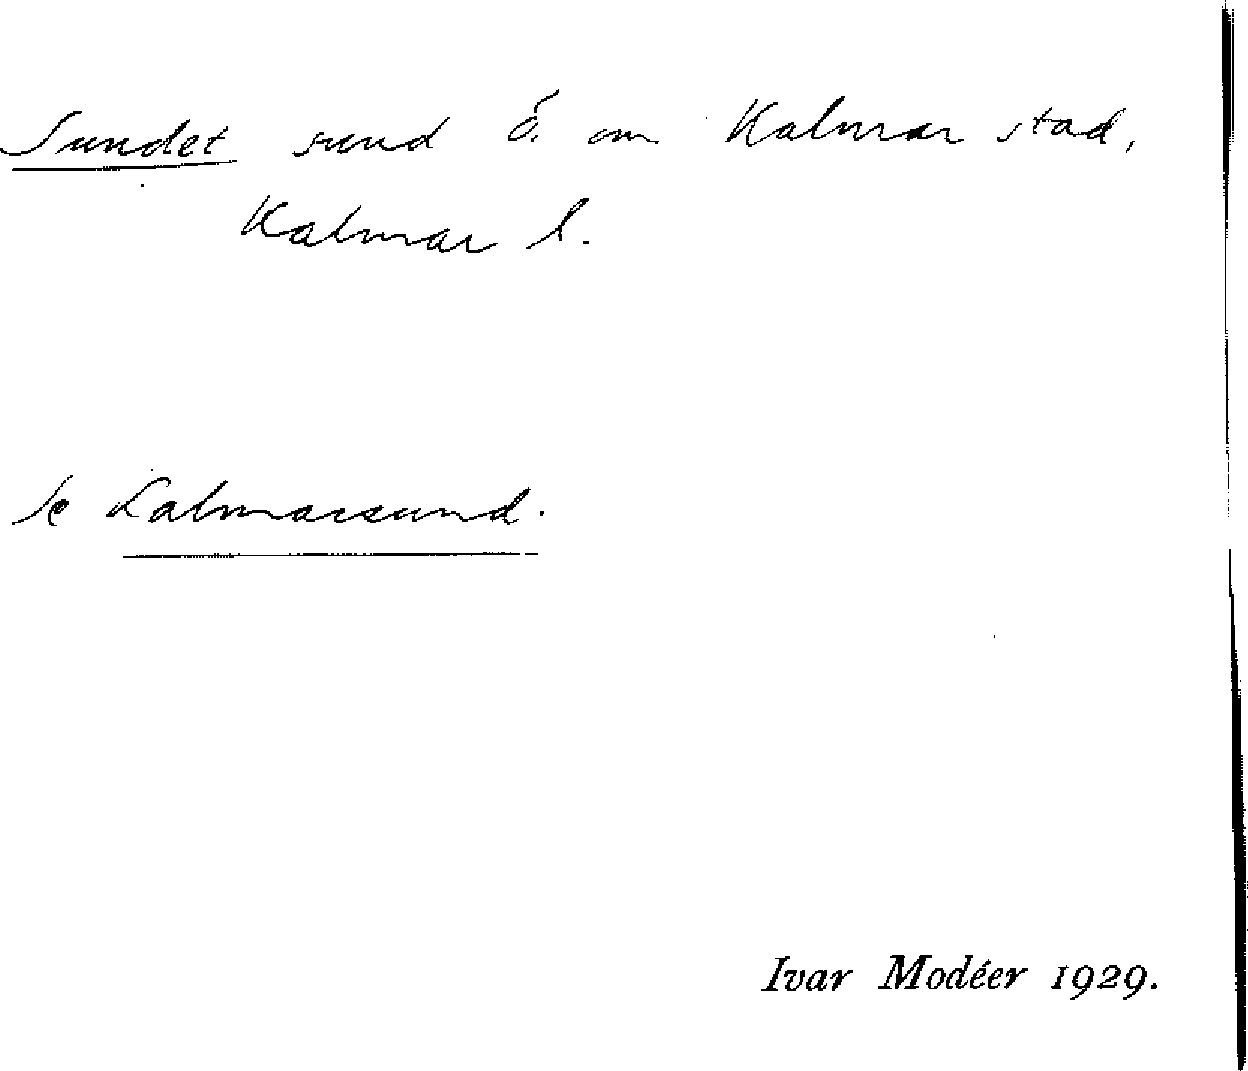 Sundet sund ö. om Kalmar stad,
Kalmar l.
Se Kalmarsund.
Ivar Modéer 1929.